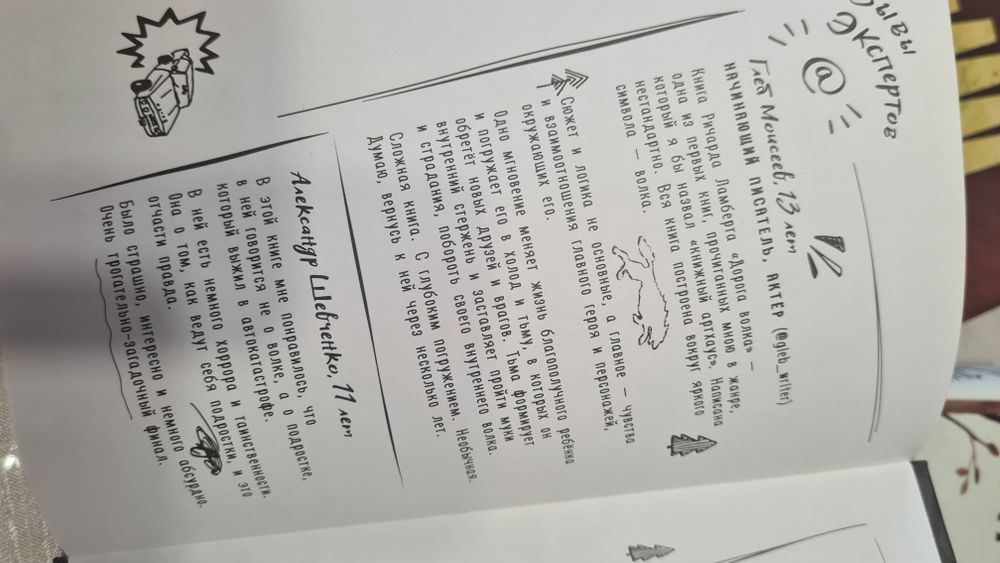 ЭКСПЕРТОВ
@
Глеб Моисеев, 13 лет
НАЧИНАЮЩИЙ ПИСАТЕЛЬ, АКТЕР (@gleb_writer)
Книга Ричарда Ламберта «Дорога волка» —
одна из первых книг, прочитанных мною в жанре,
который я бы назвал «книжный артхаус». Написана
нестандартно. Вся книга построена вокруг яркого
символа — волка.
Сюжет и логика не основные, а главное — чувства
и взаимоотношения главного героя и персонажей,
окружающих его.
Одно мгновение меняет жизнь благополучного ребёнка
и погружает его в холод и тьму, в которых он
обретёт новых друзей и врагов. Тьма формирует
внутренний стержень и заставляет пройти муки
и страдания, побороть своего внутреннего волка.
Сложная книга. С глубоким погружением. Необычная.
Думаю, вернусь к ней через несколько лет.
Александр Шевченко, 11 лет
В этой книге мне понравилось, что
в ней говорится не о волке, а о подростке,
который выжил в автокатастрофе.
В ней есть немного хоррора и таинственности.
Она о том, как ведут себя подростки, и это
отчасти правда.
Было страшно, интересно и немного абсурдно.
Очень трогательно-загадочный финал.